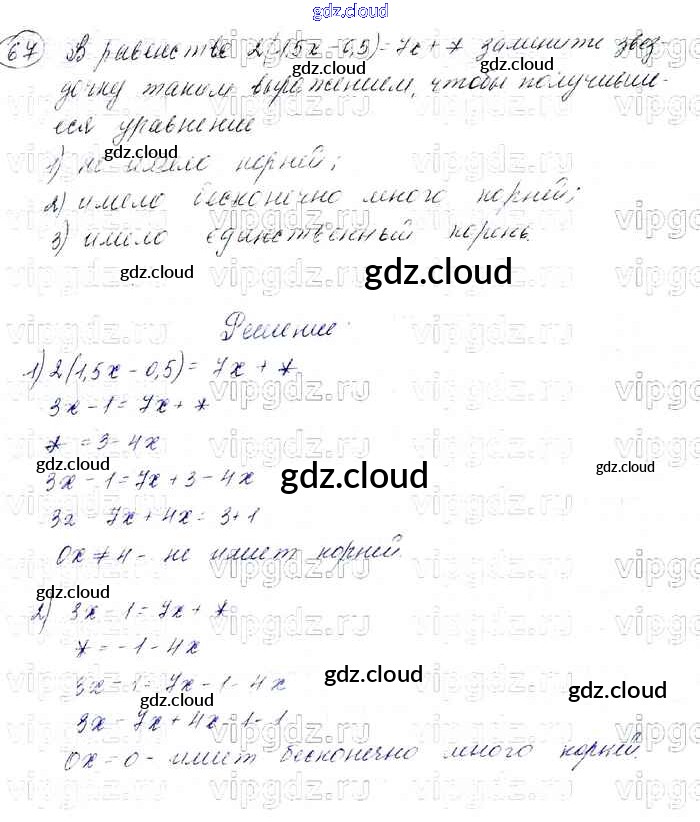 gdz.cloud
67 В равенстве 2(1,5x - 0,5) = 7x + * замените звез-
дочку таким выражением, чтобы получивше-
еся уравнение
gdz.cloud
1) не имело корней;
2) имело бесконечно много корней;
3) имело единственный корень.
gdz.cloud gdz.cloud
Решение.
1) 2(1,5x - 0,5) = 7x + *
3x - 1 = 7x + *
* = 3 - 4x
gdz.cloud gdz.cloud gdz.cloud
3x - 1 = 7x + 3 - 4x
3x - 7x + 4x = 3 + 1
0x ≠ 4 - не имеет корней
gdz.cloud
2) 3x - 1 = 7x + *
* = -1 - 4x
gdz.cloud
3x - 1 = 7x - 1 - 4x
gdz.cloud
3x - 7x + 4x = 1 - 1
0x = 0 - имеет бесконечно много корней.
gdz.cloud